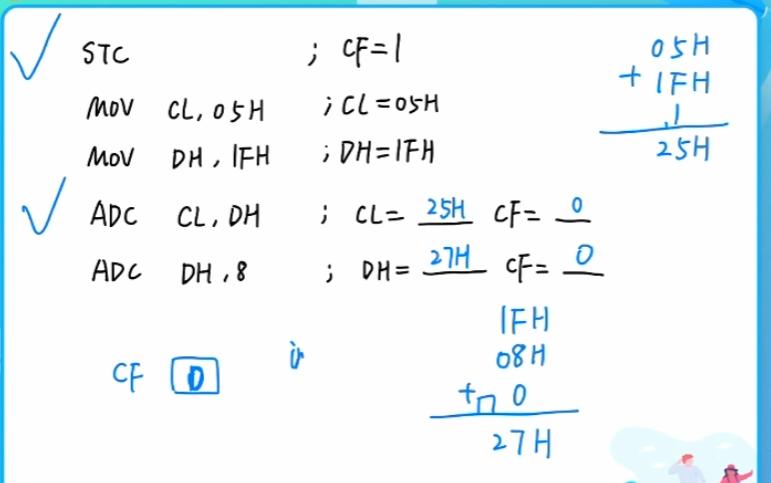 STC ; CF=1
MOV CL, 05H ; CL=05H
MOV DH, 1FH ; DH=1FH
ADC CL, DH ; CL= 25H CF= 0
ADC DH, 8 ; DH= 27H CF= 0
05H
+ 1FH
1
25H
CF 0
1FH
08H
+ 0
27H